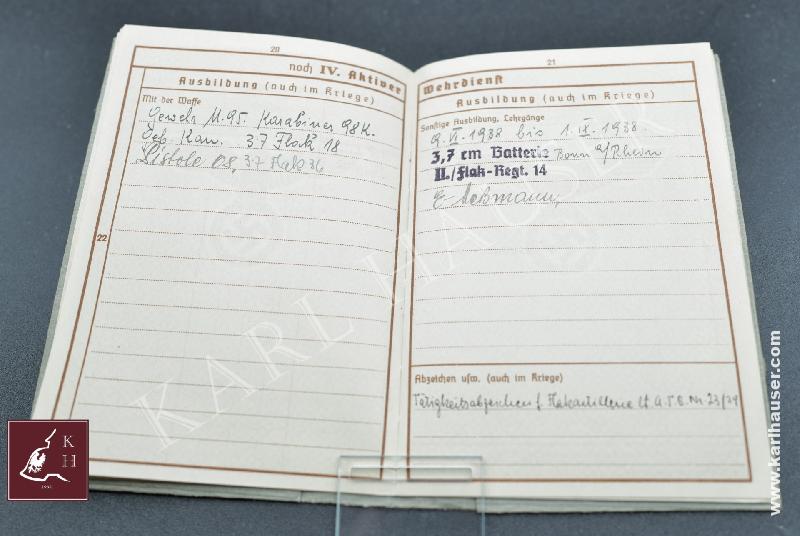 20
noch IV. Aktiver
Ausbildung (auch im Kriege)
Mit der Waffe
Gewehr M. 95. Karabiner 98 K.
Geb. Kan. 3.7 Flak 18
Pistole 08, 3.7 Flak 36
22
21
Wehrdienst
Ausbildung (auch im Kriege)
Sonstige Ausbildung, Lehrgänge
9. VI. 1938 bis 1. IX. 1938.
3,7 cm Batterie Bonn a/Rhein
II./Flak-Regt. 14
Abzeichen usw. (auch im Kriege)
Tätigkeitsabzeichen f. Flakartillerie lt. A.T.B. Nr. 23/39
KARL HAUSER
K H
www.karlhauser.com